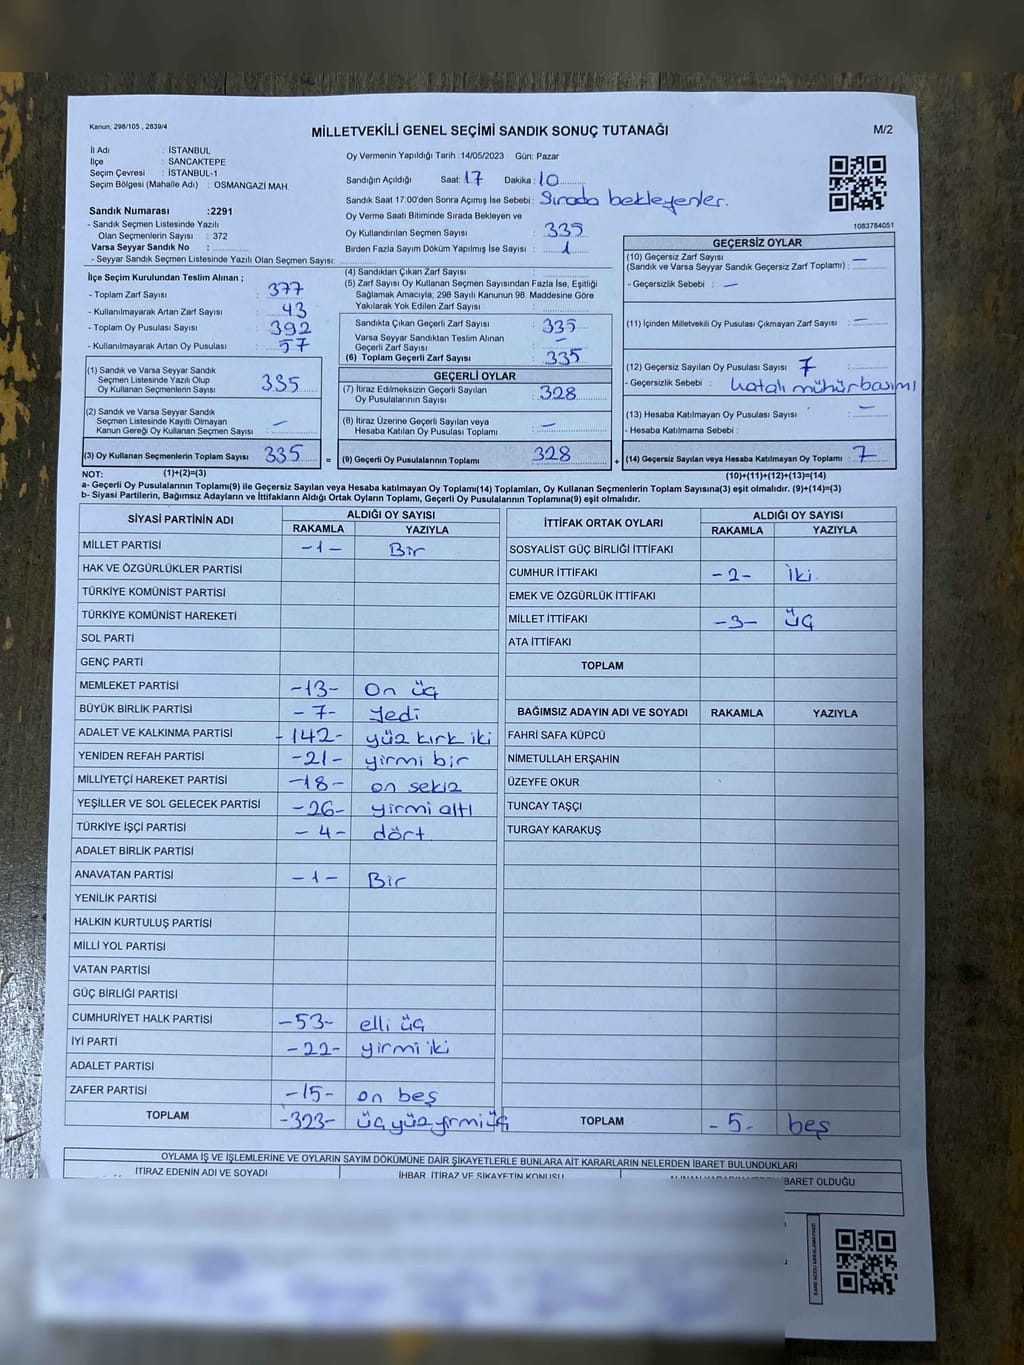 Kanun, 298/105 , 2839/4
MİLLETVEKİLİ GENEL SEÇİMİ SANDIK SONUÇ TUTANAĞI
M/2
İl Adı : İSTANBUL
İlçe : SANCAKTEPE
Seçim Çevresi : İSTANBUL-1
Seçim Bölgesi (Mahalle Adı) : OSMANGAZİ MAH.
Sandık Numarası :2291
- Sandık Seçmen Listesinde Yazılı
Olan Seçmenlerin Sayısı : 372
Varsa Seyyar Sandık No :
- Seyyar Sandık Seçmen Listesinde Yazılı Olan Seçmen Sayısı:
Oy Vermenin Yapıldığı Tarih :14/05/2023 Gün: Pazar
Sandığın Açıldığı Saat: 17 Dakika : 10
Sandık Saat 17:00'den Sonra Açımış İse Sebebi : Sırada bekleyenler.
Oy Verme Saati Bitiminde Sırada Bekleyen ve
Oy Kullandırılan Seçmen Sayısı : 335
Birden Fazla Sayım Döküm Yapılmış İse Sayısı : 1
1083784051
İlçe Seçim Kurulundan Teslim Alınan ;
- Toplam Zarf Sayısı : 377
- Kullanılmayarak Artan Zarf Sayısı : 43
- Toplam Oy Pusulası Sayısı : 392
- Kullanılmayarak Artan Oy Pusulası : 57
(1) Sandık ve Varsa Seyyar Sandık
Seçmen Listesinde Yazılı Olup
Oy Kullanan Seçmenlerin Sayısı : 335
(2) Sandık ve Varsa Seyyar Sandık
Seçmen Listesinde Kayıtlı Olmayan
Kanun Gereği Oy Kullanan Seçmen Sayısı : —
(3) Oy Kullanan Seçmenlerin Toplam Sayısı : 335 =
(4) Sandıktan Çıkan Zarf Sayısı :
(5) Zarf Sayısı Oy Kullanan Seçmen Sayısından Fazla İse, Eşitliği
Sağlamak Amacıyla; 298 Sayılı Kanunun 98. Maddesine Göre
Yakılarak Yok Edilen Zarf Sayısı :
Sandıkta Çıkan Geçerli Zarf Sayısı : 335
Varsa Seyyar Sandıktan Teslim Alınan
Geçerli Zarf Sayısı : —
(6) Toplam Geçerli Zarf Sayısı : 335
GEÇERLİ OYLAR
(7) İtiraz Edilmeksizin Geçerli Sayılan
Oy Pusulalarının Sayısı : 328
(8) İtiraz Üzerine Geçerli Sayılan veya
Hesaba Katılan Oy Pusulası Toplamı : —
(9) Geçerli Oy Pusulalarının Toplamı : 328 +
GEÇERSİZ OYLAR
(10) Geçersiz Zarf Sayısı
(Sandık ve Varsa Seyyar Sandık Geçersiz Zarf Toplamı) : —
- Geçersizlik Sebebi : —
(11) İçinden Milletvekili Oy Pusulası Çıkmayan Zarf Sayısı : —
(12) Geçersiz Sayılan Oy Pusulası Sayısı : 7
- Geçersizlik Sebebi : hatalı mühür basımı
(13) Hesaba Katılmayan Oy Pusulası Sayısı : —
- Hesaba Katılmama Sebebi :
(14) Geçersiz Sayılan veya Hesaba Katılmayan Oy Toplamı : 7
NOT: (1)+(2)=(3) (10)+(11)+(12)+(13)=(14)
a- Geçerli Oy Pusulalarının Toplamı(9) ile Geçersiz Sayılan veya Hesaba katılmayan Oy Toplamı(14) Toplamları, Oy Kullanan Seçmenlerin Toplam Sayısına(3) eşit olmalıdır. (9)+(14)=(3)
b- Siyasi Partilerin, Bağımsız Adayların ve İttifakların Aldığı Ortak Oyların Toplamı, Geçerli Oy Pusulalarının Toplamına(9) eşit olmalıdır.
SİYASİ PARTİNİN ADI ALDIĞI OY SAYISI
RAKAMLA YAZIYLA
MİLLET PARTİSİ -1- Bir
HAK VE ÖZGÜRLÜKLER PARTİSİ
TÜRKİYE KOMÜNİST PARTİSİ
TÜRKİYE KOMÜNİST HAREKETİ
SOL PARTİ
GENÇ PARTİ
MEMLEKET PARTİSİ -13- On üç
BÜYÜK BİRLİK PARTİSİ -7- Yedi
ADALET VE KALKINMA PARTİSİ -142- yüz kırk iki
YENİDEN REFAH PARTİSİ -21- yirmi bir
MİLLİYETÇİ HAREKET PARTİSİ -18- on sekiz
YEŞİLLER VE SOL GELECEK PARTİSİ -26- yirmi altı
TÜRKİYE İŞÇİ PARTİSİ -4- dört
ADALET BİRLİK PARTİSİ
ANAVATAN PARTİSİ -1- Bir
YENİLİK PARTİSİ
HALKIN KURTULUŞ PARTİSİ
MİLLİ YOL PARTİSİ
VATAN PARTİSİ
GÜÇ BİRLİĞİ PARTİSİ
CUMHURİYET HALK PARTİSİ -53- elli üç
İYİ PARTİ -22- yirmi iki
ADALET PARTİSİ
ZAFER PARTİSİ -15- on beş
TOPLAM -323- üç yüz yirmi üç
İTTİFAK ORTAK OYLARI ALDIĞI OY SAYISI
RAKAMLA YAZIYLA
SOSYALİST GÜÇ BİRLİĞİ İTTİFAKI
CUMHUR İTTİFAKI -2- İki
EMEK VE ÖZGÜRLÜK İTTİFAKI
MİLLET İTTİFAKI -3- üç
ATA İTTİFAKI
TOPLAM
BAĞIMSIZ ADAYIN ADI VE SOYADI RAKAMLA YAZIYLA
FAHRİ SAFA KÜPCÜ
NİMETULLAH ERŞAHİN
ÜZEYFE OKUR
TUNCAY TAŞÇI
TURGAY KARAKUŞ
TOPLAM -5- beş
OYLAMA İŞ VE İŞLEMLERİNE VE OYLARIN SAYIM DÖKÜMÜNE DAİR ŞİKAYETLERLE BUNLARA AİT KARARLARIN NELERDEN İBARET BULUNDUKLARI
İTİRAZ EDENİN ADI VE SOYADI İHBAR, İTİRAZ VE ŞİKAYETİN KONUSU İBARET OLDUĞU